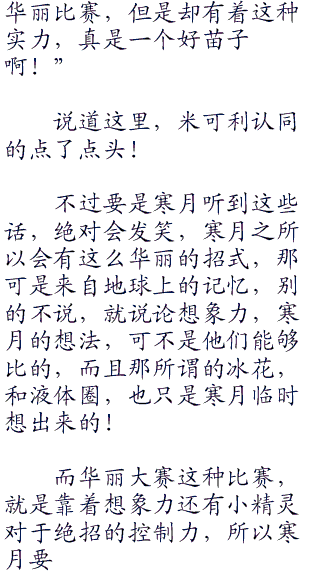 华丽比赛，但是却有着这种
实力，真是一个好苗子
啊！”
说道这里，米可利认同
的点了点头！
不过要是寒月听到这些
话，绝对会发笑，寒月之所
以会有这么华丽的招式，那
可是来自地球上的记忆，别
的不说，就说论想象力，寒
月的想法，可不是他们能够
比的，而且那所谓的冰花，
和液体圈，也只是寒月临时
想出来的！
而华丽大赛这种比赛，
就是靠着想象力还有小精灵
对于绝招的控制力，所以寒
月要